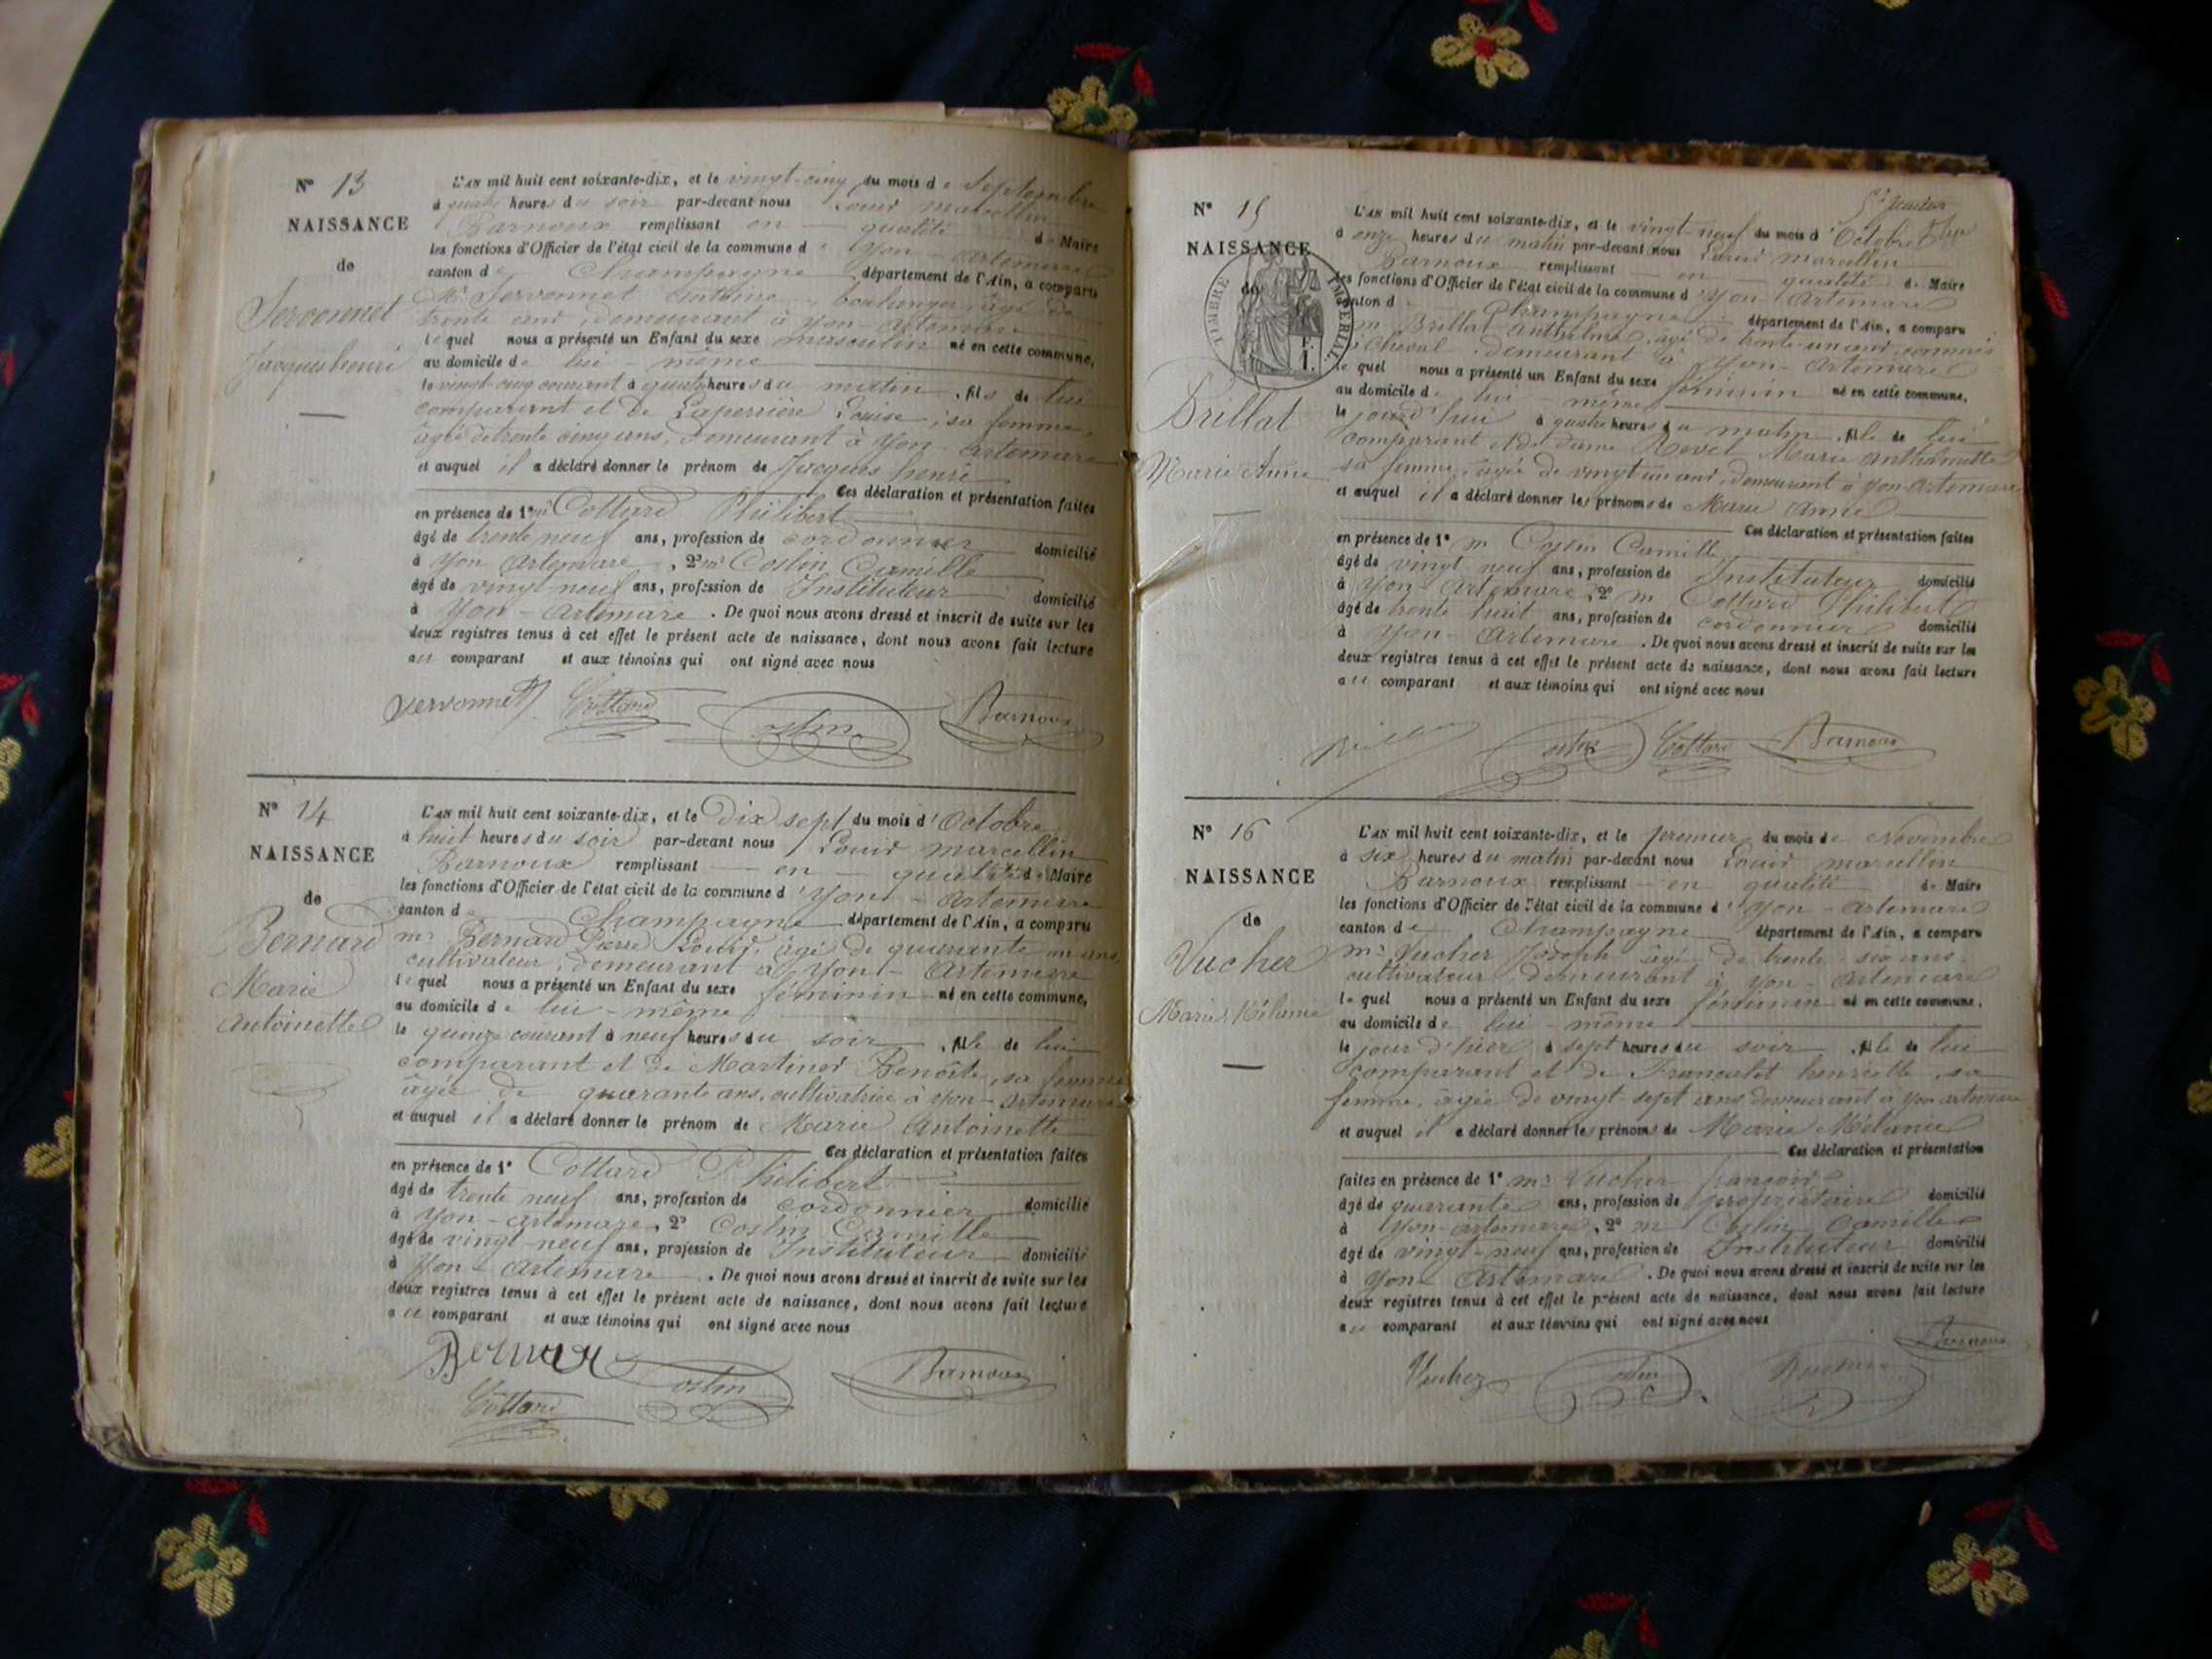 N° 13
NAISSANCE
de
Servonnet
Jacques henri
L'AN mil huit cent soixante-dix, et le vingt-cinq du mois de Septembre
à quatre heures du soir par-devant nous Louis marcellin
Barnoux remplissant en qualité de Maire
les fonctions d'Officier de l'état civil de la commune d'Yon-Artemare
canton de Champagne département de l'Ain, a comparu
Mr Servonnet Antoine, boulanger, âgé de
trente ans, demeurant à Yon-Artemare
lequel nous a présenté un Enfant du sexe masculin né en cette commune,
au domicile de lui même
le vingt-cinq courant à quatre heures du matin, fils de lui
comparant et de Laperrière Louise, sa femme,
âgée de trente cinq ans, demeurant à Yon-Artemare
et auquel il a déclaré donner le prénom de Jacques henri
Ces déclaration et présentation faites
en présence de 1° mr Cottard Philibert
âgé de trente neuf ans, profession de cordonnier domicilié
à Yon Artemare, 2° mr Costin Camille
âgé de vingt neuf ans, profession de Instituteur domicilié
à Yon-Artemare. De quoi nous avons dressé et inscrit de suite sur les
deux registres tenus à cet effet le présent acte de naissance, dont nous avons fait lecture
au comparant et aux témoins qui ont signé avec nous
Servonnet Cottard Costin Barnoux
N° 14
NAISSANCE
de
Bernard
Marie
Antoinette
L'AN mil huit cent soixante-dix, et le Dix sept du mois d'Octobre
à huit heures du soir par-devant nous Louis marcellin
Barnoux remplissant en qualité de Maire
les fonctions d'Officier de l'état civil de la commune d'Yon-Artemare
canton de Champagne département de l'Ain, a comparu
mr Bernard Pierre Louis, âgé de quarante un ans,
cultivateur, demeurant à Yon-Artemare
lequel nous a présenté un Enfant du sexe féminin né en cette commune,
au domicile de lui-même
le quinze courant à neuf heures du soir, fille de lui
comparant et de Martinod Benoîte, sa femme
âgée de quarante ans, cultivatrice à Yon-Artemare
et auquel il a déclaré donner le prénom de Marie Antoinette
Ces déclaration et présentation faites
en présence de 1° Cottard Philibert
âgé de trente neuf ans, profession de cordonnier domicilié
à Yon-Artemare, 2° Costin Camille
âgé de vingt-neuf ans, profession de Instituteur domicilié
à Yon-Artemare. De quoi nous avons dressé et inscrit de suite sur les
deux registres tenus à cet effet le présent acte de naissance, dont nous avons fait lecture
au comparant et aux témoins qui ont signé avec nous
Bernard Costin Barnoux
Cottard
N° 15
NAISSANCE
de
TIMBRE IMPERIAL
Brillat
Marie Anne
L'AN mil huit cent soixante-dix, et le vingt-neuf du mois d'Octobre
à onze heures du matin par-devant nous Louis marcellin
Barnoux remplissant en qualité de Maire
les fonctions d'Officier de l'état civil de la commune d'Yon-Artemare
canton de Champagne département de l'Ain, a comparu
m Brillat Anthelme, âgé de trente-un ans, commis
à cheval, demeurant à Yon-Artemare
lequel nous a présenté un Enfant du sexe féminin né en cette commune,
au domicile de lui-même
le jourd'hui à quatre heures du matin, fille de lui
comparant et de dame Revet Marie Anthelmette
sa femme, âgée de vingt un ans, demeurant à Yon Artemare
et auquel il a déclaré donner les prénoms de Marie Anne
Ces déclaration et présentation faites
en présence de 1° m Costin Camille
âgé de vingt neuf ans, profession de Instituteur domicilié
à Yon-Artemare, 2° m Cottard Philibert
âgé de trente huit ans, profession de cordonnier domicilié
à Yon-Artemare. De quoi nous avons dressé et inscrit de suite sur les
deux registres tenus à cet effet le présent acte de naissance, dont nous avons fait lecture
au comparant et aux témoins qui ont signé avec nous
Brillat Costin Cottard Barnoux
N° 16
NAISSANCE
de
Vucher
Marie Mélanie
L'AN mil huit cent soixante-dix, et le premier du mois de Novembre
à six heures du matin par-devant nous Louis marcellin
Barnoux remplissant en qualité de Maire
les fonctions d'Officier de l'état civil de la commune d'Yon-Artemare
canton de Champagne département de l'Ain, a comparu
mr Vucher Joseph âgé de trente-six ans
cultivateur demeurant à Yon-Artemare
lequel nous a présenté un Enfant du sexe féminin né en cette commune,
au domicile de lui-même
le jour d'hier à sept heures du soir, fille de lui
comparant et de Francalet henriette, sa
femme, âgée de vingt-sept ans demeurant à Yon artemare
et auquel il a déclaré donner les prénoms de Marie Mélanie
Ces déclaration et présentation
faites en présence de 1° mr Vucher françois
âgé de quarante ans, profession de propriétaire domicilié
à Yon-artemare, 2° m Costin Camille
âgé de vingt-neuf ans, profession de Instituteur domicilié
à Yon-Artemare. De quoi nous avons dressé et inscrit de suite sur les
deux registres tenus à cet effet le présent acte de naissance, dont nous avons fait lecture
au comparant et aux témoins qui ont signé avec nous
Barnoux
Vucher Costin